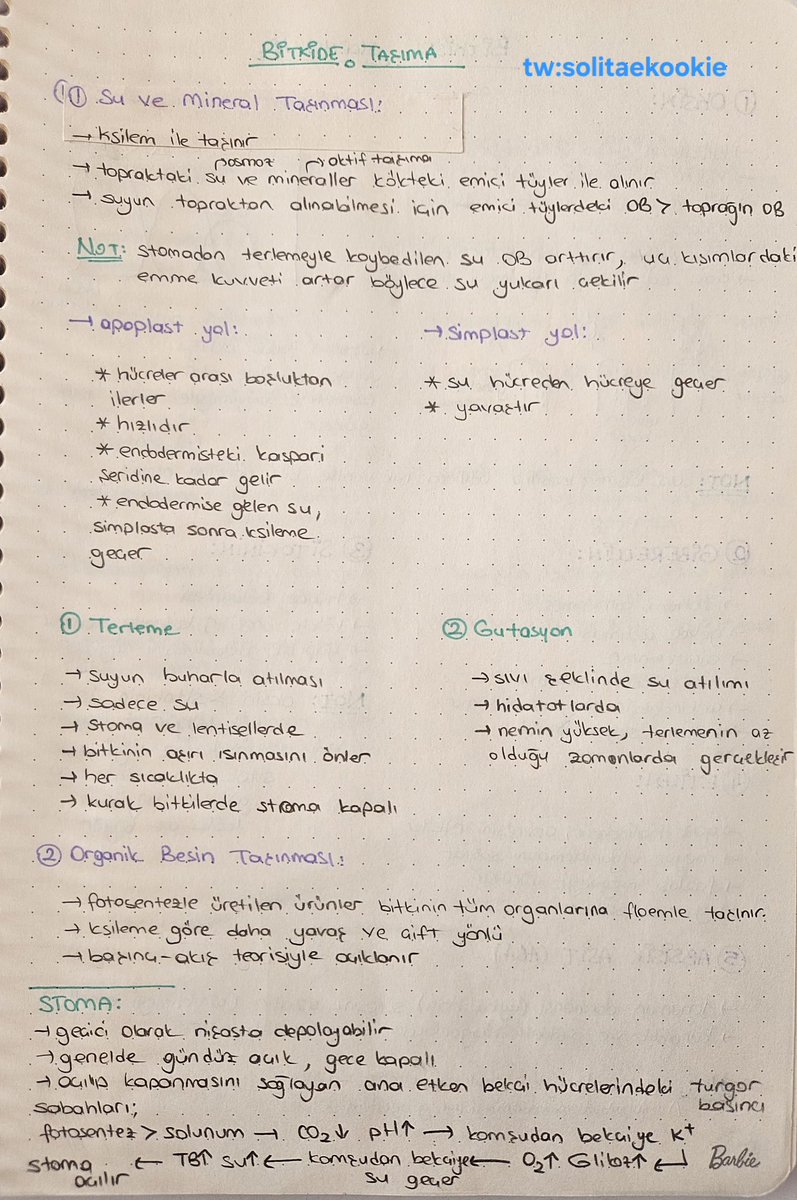 BİTKİDE TAŞIMA
tw:solitaekookie
① Su ve Mineral Taşınması:
→ ksilem ile taşınır
osmoz aktif taşıma
→ topraktaki su ve mineraller kökteki emici tüyler ile alınır
→ suyun topraktan alınabilmesi için emici tüylerdeki OB > toprağın OB
NOT: Stomadan terlemeyle kaybedilen su OB arttırır, uç kısımlardaki
emme kuvveti artar böylece su yukarı çekilir
→ apoplast yol:
* hücreler arası boşluktan
ilerler
* hızlıdır
* endodermisteki kaspari
şeridine kadar gelir
* endodermise gelen su,
simplasta sonra ksileme
geçer
→ Simplast yol:
* su hücreden hücreye geçer
* yavaştır
① Terleme
→ suyun buharla atılması
→ sadece su
→ stoma ve lentisellerde
→ bitkinin aşırı ısınmasını önler
→ her sıcaklıkta
→ kurak bitkilerde stroma kapalı
② Gutasyon
→ sıvı şeklinde su atılımı
→ hidatotlarda
→ nemin yüksek, terlemenin az
olduğu zamanlarda gerçekleşir
② Organik Besin Taşınması:
→ fotosentezle üretilen ürünler bitkinin tüm organlarına floemle taşınır
→ ksileme göre daha yavaş ve çift yönlü
→ basınç-akış teorisiyle açıklanır
STOMA:
→ geçici olarak nişasta depolayabilir
→ genelde gündüz açık, gece kapalı
→ açılıp kapanmasını sağlayan ana etken bekçi hücrelerindeki turgor
basıncı
sabahları;
fotosentez > solunum → CO₂↓ pH↑ → komşudan bekçiye K⁺
stoma açılır ← TB↑ su↑ ← komşudan bekçiye su geçer ← O₂↑ Glikoz↑ ↵
Barbie